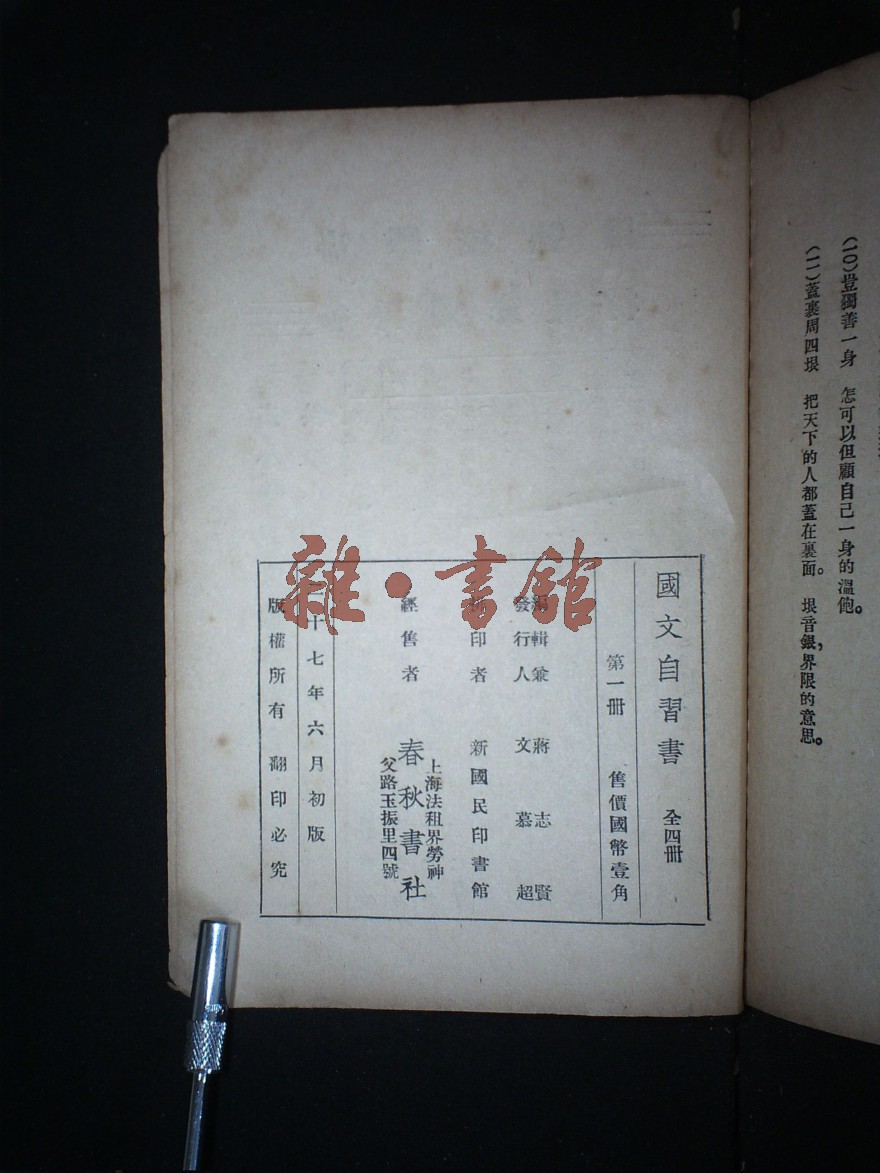 (10)豈獨善一身　怎可以但顧自己一身的溫飽。
(一一)蓋裹周四垠　把天下的人都蓋在裏面。　垠音銀，界限的意思。
國文自習書　全四冊
第一冊　售價國幣壹角
編輯兼　蔣志賢
發行人　文慕超
印者　新國民印書館
上海法租界勞神
經售者　春秋書社
父路玉振里四號
十七年六月初版
版權所有　翻印必究
雜·書館